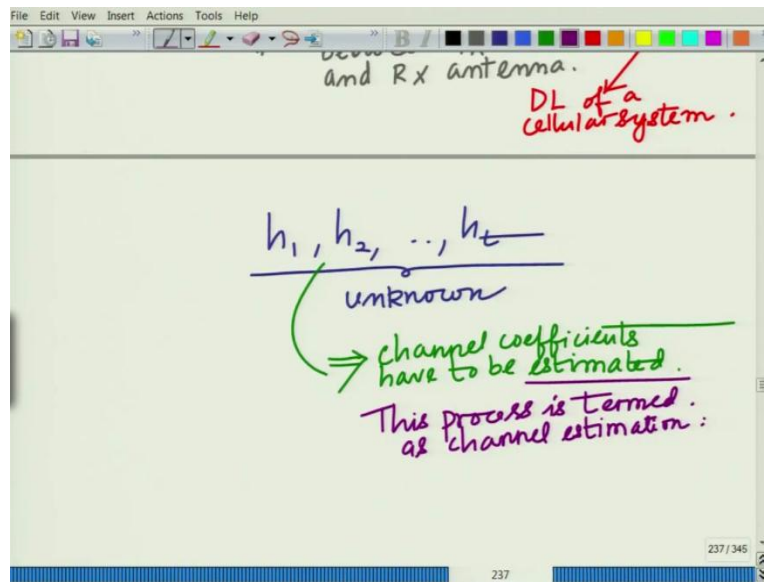 File Edit View Insert Actions Tools Help
and Rx antenna.
DL of a
cellular system.
h1, h2, .., ht
unknown
⇒ channel coefficients
have to be estimated.
This process is termed.
as channel estimation:
237 / 345
237